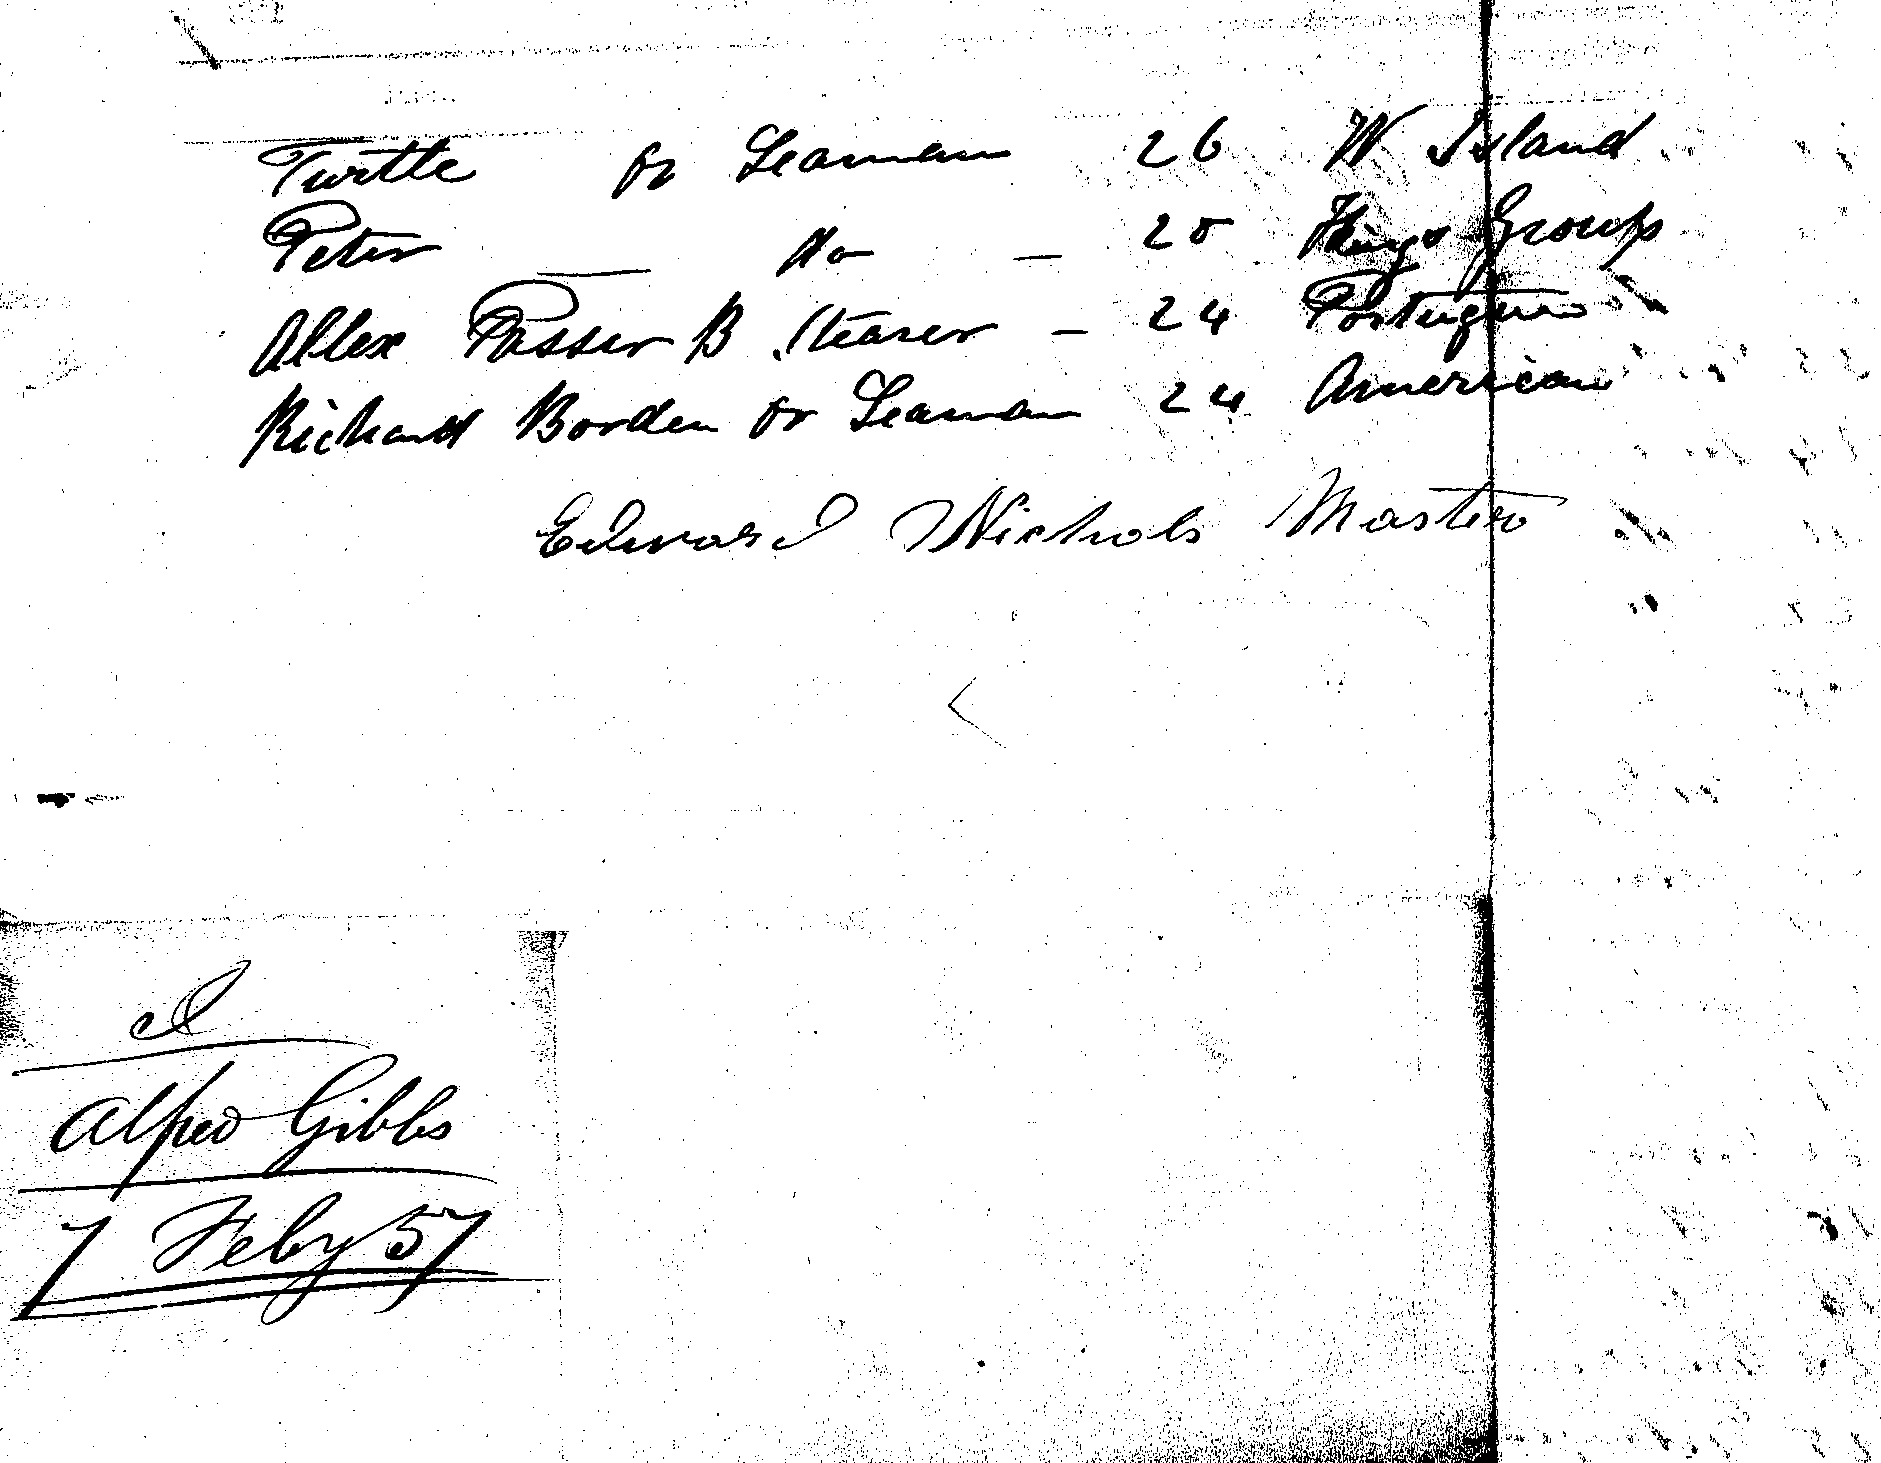 Turtle or Seaman 26 W Island
Peter — Do — 25 Kings Group
Allex Passer B Stearer — 24 Portuguese
Richard Borden or Seaman 24 American
Edward Nichols Master
Alfred Gibbs
7 Feby 57